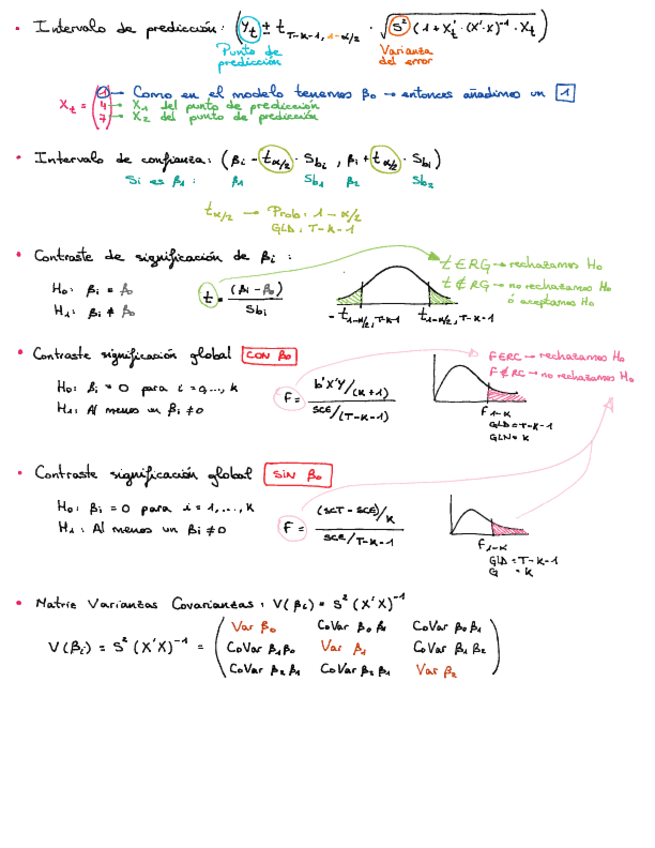 • Intervalo de predicción: (Yt ± t T-K-1, 1-α/2 · √(S² (1 + Xt' · (X'·X)⁻¹ · Xt)))
Punto de predicción
Varianza del error
Xt = (1 4 7)
1 → Como en el modelo tenemos β0 → entonces añadimos un 1
4 → X1 del punto de predicción
7 → X2 del punto de predicción
• Intervalo de confianza: (βi - tα/2 · Sbi , βi + tα/2 · Sbi)
Si es β1: β1 Sb1 β2 Sb2
tα/2 → Prob: 1 - α/2
GLD: T-K-1
• Contraste de significación de βi:
H0: βi = β0
H1: βi ≠ β0
t = (βi - β0) / Sbi
- t1-α/2, T-K-1
t1-α/2, T-K-1
t ∈ RG → rechazamos H0
t ∉ RG → no rechazamos H0
ó aceptamos H0
• Contraste significación global CON β0
H0: βi = 0 para i = 0,..., K
H1: Al menos un βi ≠ 0
F = b'X'Y/(K+1) / SCE/(T-K-1)
F ∈ RC → rechazamos H0
F ∉ RC → no rechazamos H0
F1-α
GLD = T-K-1
GLN = K
• Contraste significación global SIN β0
H0: βi = 0 para i = 1,..., K
H1: Al menos un βi ≠ 0
F = (SCT - SCE)/K / SCE/T-K-1
F1-α
GLD = T-K-1
G = K
• Matriz Varianzas Covarianzas: V(βi) = S² (X'X)⁻¹
V(βi) = S² (X'X)⁻¹ =
Var β0 CoVar β0 β1 CoVar β0 β1
CoVar β1 β0 Var β1 CoVar β1 β2
CoVar β2 β1 CoVar β2 β1 Var β2